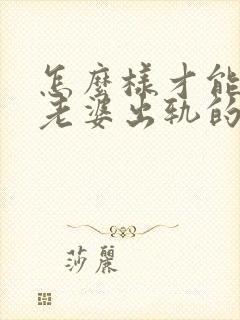 怎麼樣才能
老婆出軌的
莎麗